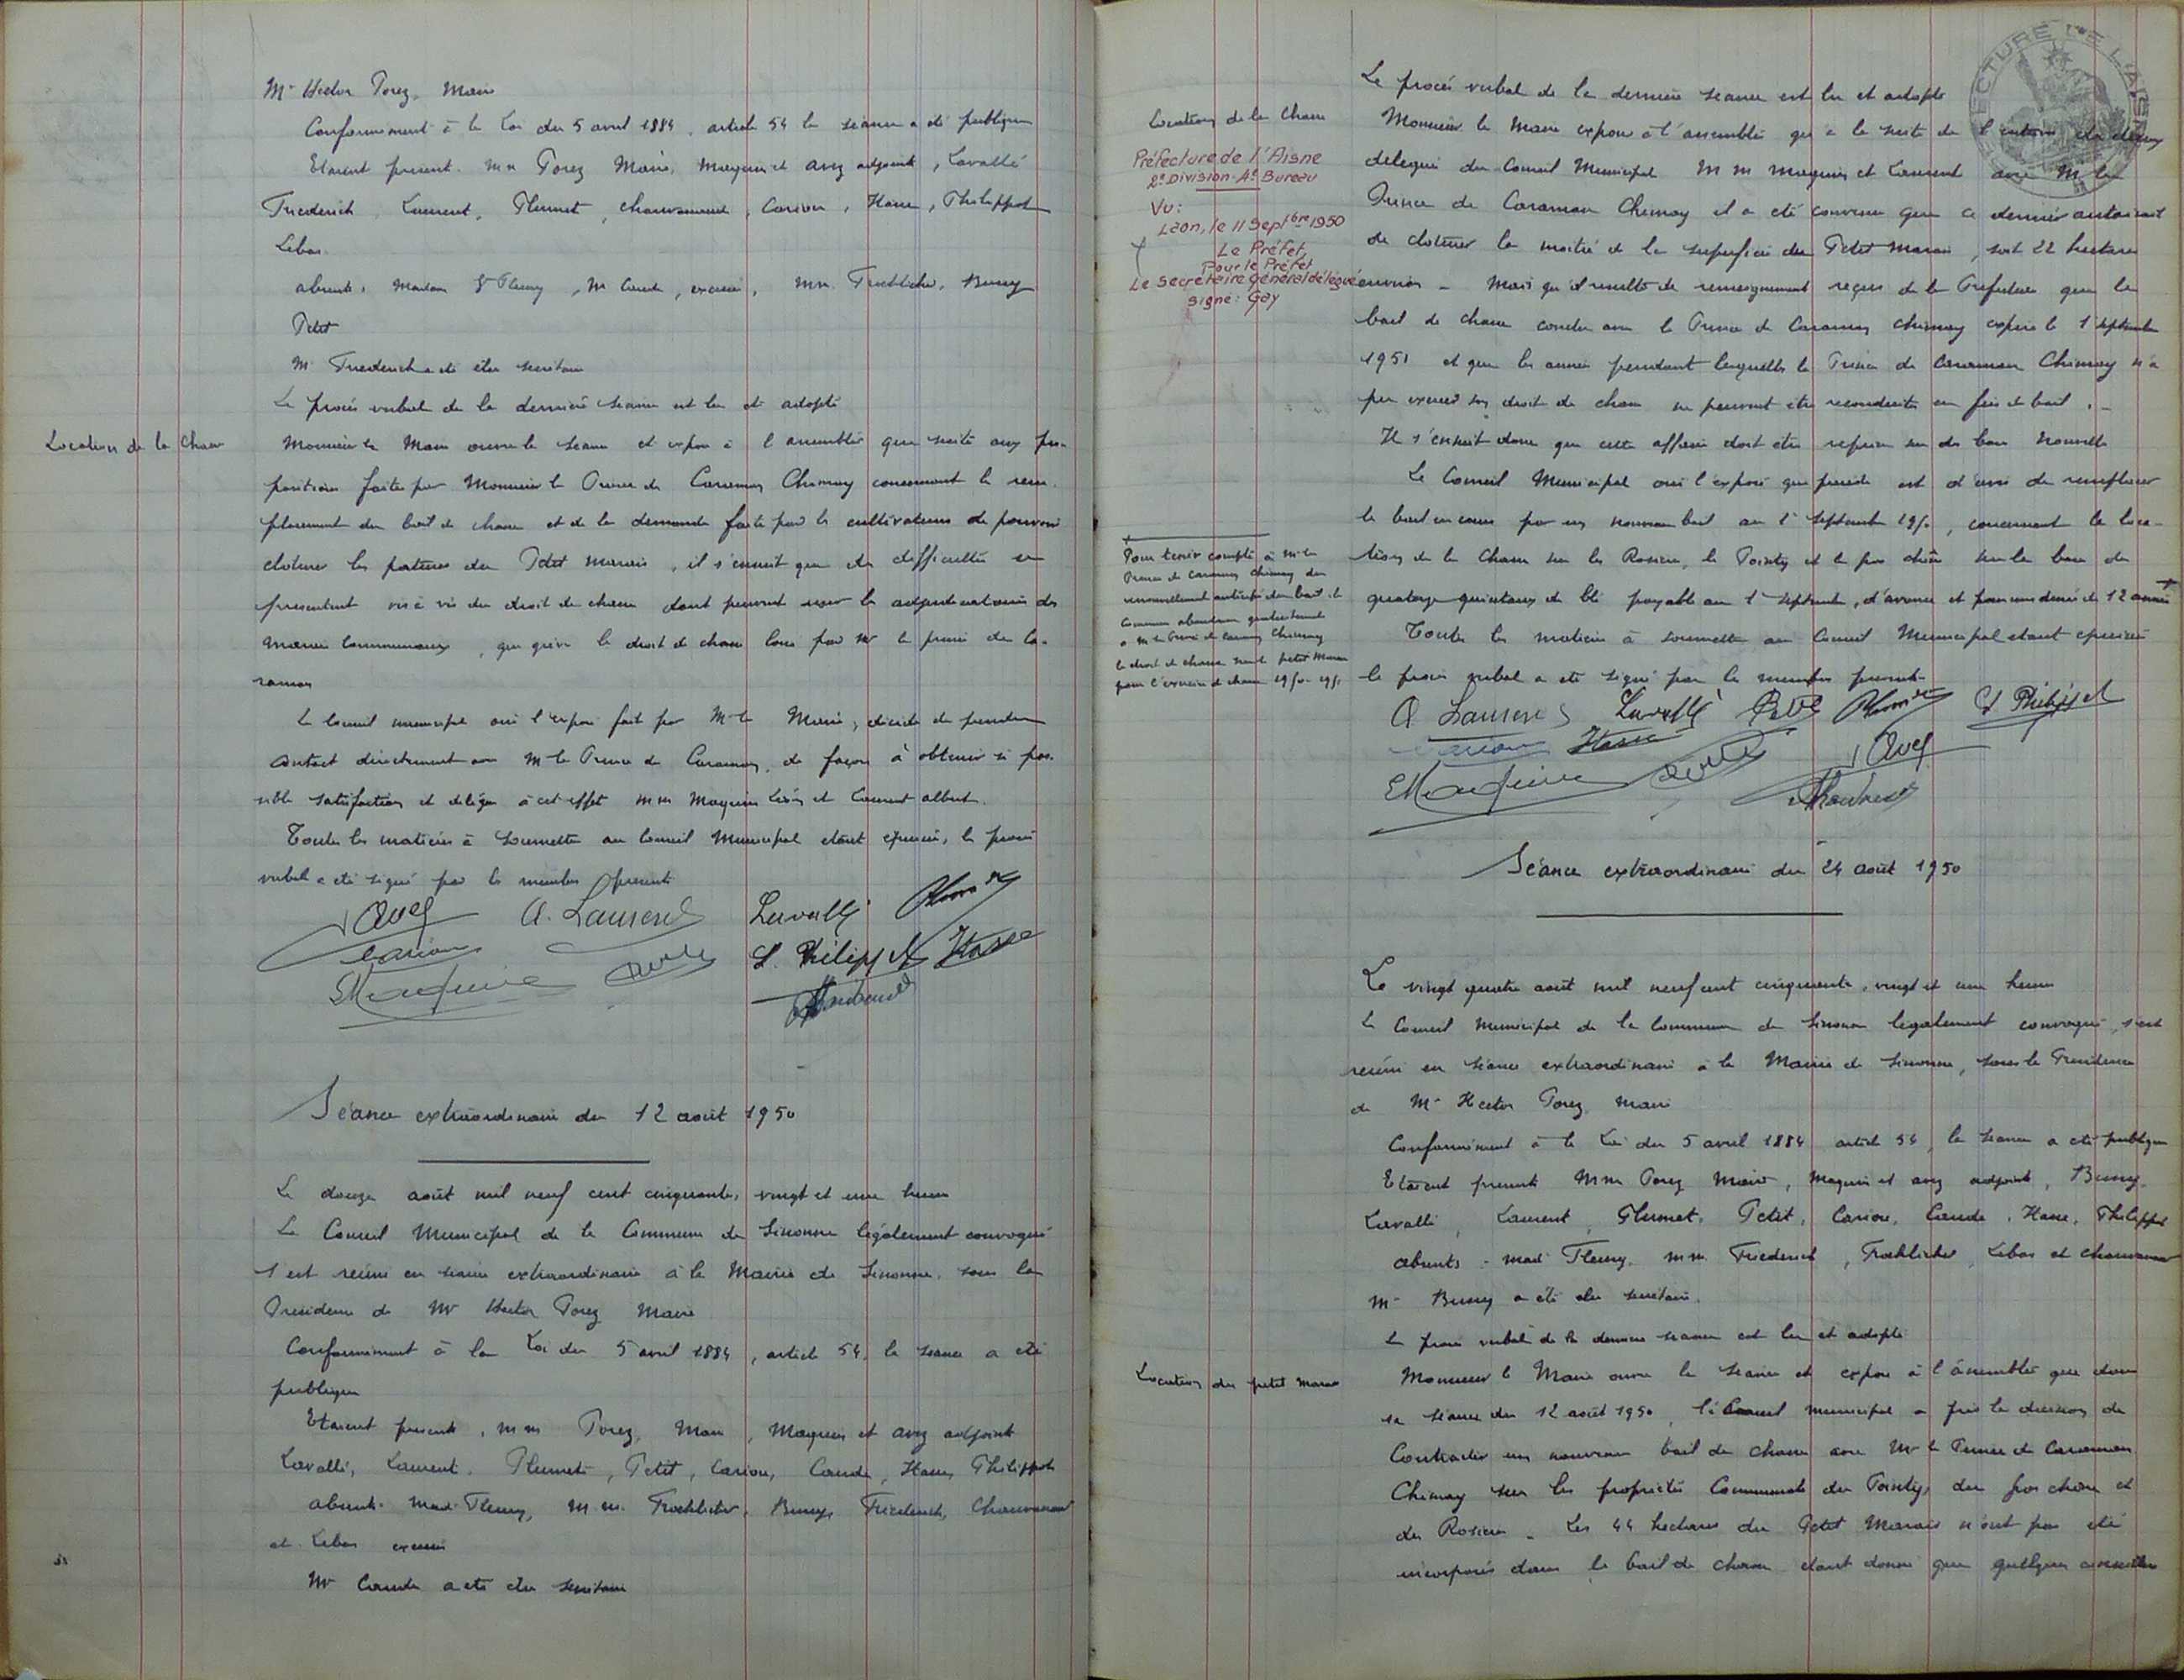 Mr Hector Porez, Maire
Conformement à la Loi du 5 avril 1884, article 54 la séance a été publique
Etaient présent. mm Porez Maire, Maquin et Avez adjoints, Lavallé
Friederich, Laurent, Plumet, Chauvenet, Carion, Hasse, Philippot
Lebas
absents, Madame Vve Fleury, M Caude, excusés, mm. Froehlicher, Bussy
Petit
Mr Friederich a été élu secrétaire
Le procès verbal de la dernière séance est lu et adopté
Location de la Chasse
Monsieur le Maire ouvre la séance et expose à l'assemblée que suite aux pro-
positions faites par Monsieur le Prince de Caraman Chimay concernant le rem-
placement du bail de chasse et de la demande faite par les cultivateurs de pouvoir
cloturer les patures du Petit Marais, il s'ensuit que des difficultés se
présentent vis à vis du droit de chasse dont peuvent user les adjudicataires des
marais communaux, que grève le droit de chasse loué par Mr le prince de Ca-
raman
Le Conseil municipal ouï l'exposé fait par Mr le Maire, décide de prendre
contact directement avec Mr le Prince de Caraman, de façon à obtenir si pos-
sible satisfaction et délègue à cet effet mm Maquin Léon et Laurent albert.
Toutes les matières à soumettre au Conseil Municipal étant épuisées, le procès
verbal a été signé par les membres présents
Avez A. Laurent Lavallé
Carion L. Philippot Hasse
EMaquin
Séance extraordinaire du 12 août 1950
Le douze août mil neuf cent cinquante, vingt et une heures
Le Conseil Municipal de la Commune de Sissonne légalement convoqué
s'est réuni en séance extraordinaire à la Mairie de Sissonne, sous la
Présidence de Mr Hector Porez Maire
Conformement à la Loi du 5 avril 1884, article 54, la séance a été
publique
Etaient présents, mm Porez, Maire, Maquin et Avez adjoints
Lavallé, Laurent, Plumet, Petit, Carion, Caude, Hasse, Philippot
absents Made Fleury, M.m. Froehlicher, Bussy, Friederich, Chauvenet
et Lebas excusés
Mr Caude a été élu secrétaire
PREFECTURE DE L'AISNE
Le procès verbal de la dernière séance est lu et adopté
Location de la Chasse
Monsieur le Maire expose à l'assemblée qu'à la suite de l'entrevue des deux
délégués du Conseil Municipal M m Maquin et Laurent avec M le
Prince de Caraman Chimay il a été convenu que ce dernier autorisait
de cloturer la moitié de la superficie du Petit Marais, soit 22 hectares
environ - Mais qu'il résulte de renseignements reçus de la Préfecture que le
bail de chasse conclu avec le Prince de Caraman Chimay expire le 1 septembre
1951 et que les années pendant lesquelles le Prince de Caraman Chimay n'a
pu exercer son droit de chasse ne peuvent être reconduites en fin de bail. -
Il s'ensuit donc que cette affaire doit être reprise sur des bases nouvelles
Préfecture de l'Aisne
2e Division-4e Bureau
Vu:
Laon, le 11 Septbre 1950
Le Préfet,
Pour le Préfet
Le Secrétaire Général délégué
signé: Gay
Le Conseil Municipal ouï l'exposé qui précède est d'avis de remplacer
le bail en cours par un nouveau bail au 1er septembre 1950, concernant la loca-
tion de la Chasse sur les Rosiere, le Pointy et le gros chêne sur la base de
quatorze quintaux de blé payable au 1er septembre, d'avance et pour une durée de 12 années +
Toutes les matières à soumettre au Conseil Municipal étant épuisées
le procès verbal a été signé par les membres présents
Pour tenir compte à Mr le
Prince de Caraman Chimay du
renouvellement anticipé du bail, la
Commune abandonne gratuitement
à Mr le Prince de Caraman Chimay
le droit de chasse sur le petit Marais
pour l'exercice de chasse 1950-1951
A Laurent Lavallé L Philippot
Carion Hasse Avez
EMaquin
Séance extraordinaire du 24 août 1950
Le vingt quatre août mil neuf cent cinquante, vingt et une heures
Le Conseil Municipal de la Commune de Sissonne légalement convoqué, s'est
réuni en séance extraordinaire à la Mairie de Sissonne, sous la Présidence
de Mr Hector Porez, Maire
Conformément à la Loi du 5 avril 1884 article 54, la séance a été publique
Etaient présents Mm Porez Maire, Maquin et Avez adjoints, Bussy
Lavallé, Laurent, Plumet, Petit, Carion, Caude, Hasse, Philippot
absents - Made Fleury, m.m. Friederich, Froehlicher, Lebas et Chauvenet
Mr Bussy a été élu secrétaire.
Le procès verbal de la dernière séance est lu et adopté
Location du petit Marais
Monsieur le Maire ouvre la séance et expose à l'assemblée que dans
sa séance du 12 août 1950, le Conseil municipal a pris la décision de
Contracter un nouveau bail de chasse avec Mr le Prince de Caraman
Chimay sur les propriétés Communales du Pointy, du gros chêne et
du Rosiere - Les 44 hectares du Petit Marais n'ont pas été
incorporés dans le bail de chasse étant donné que quelques conseillers